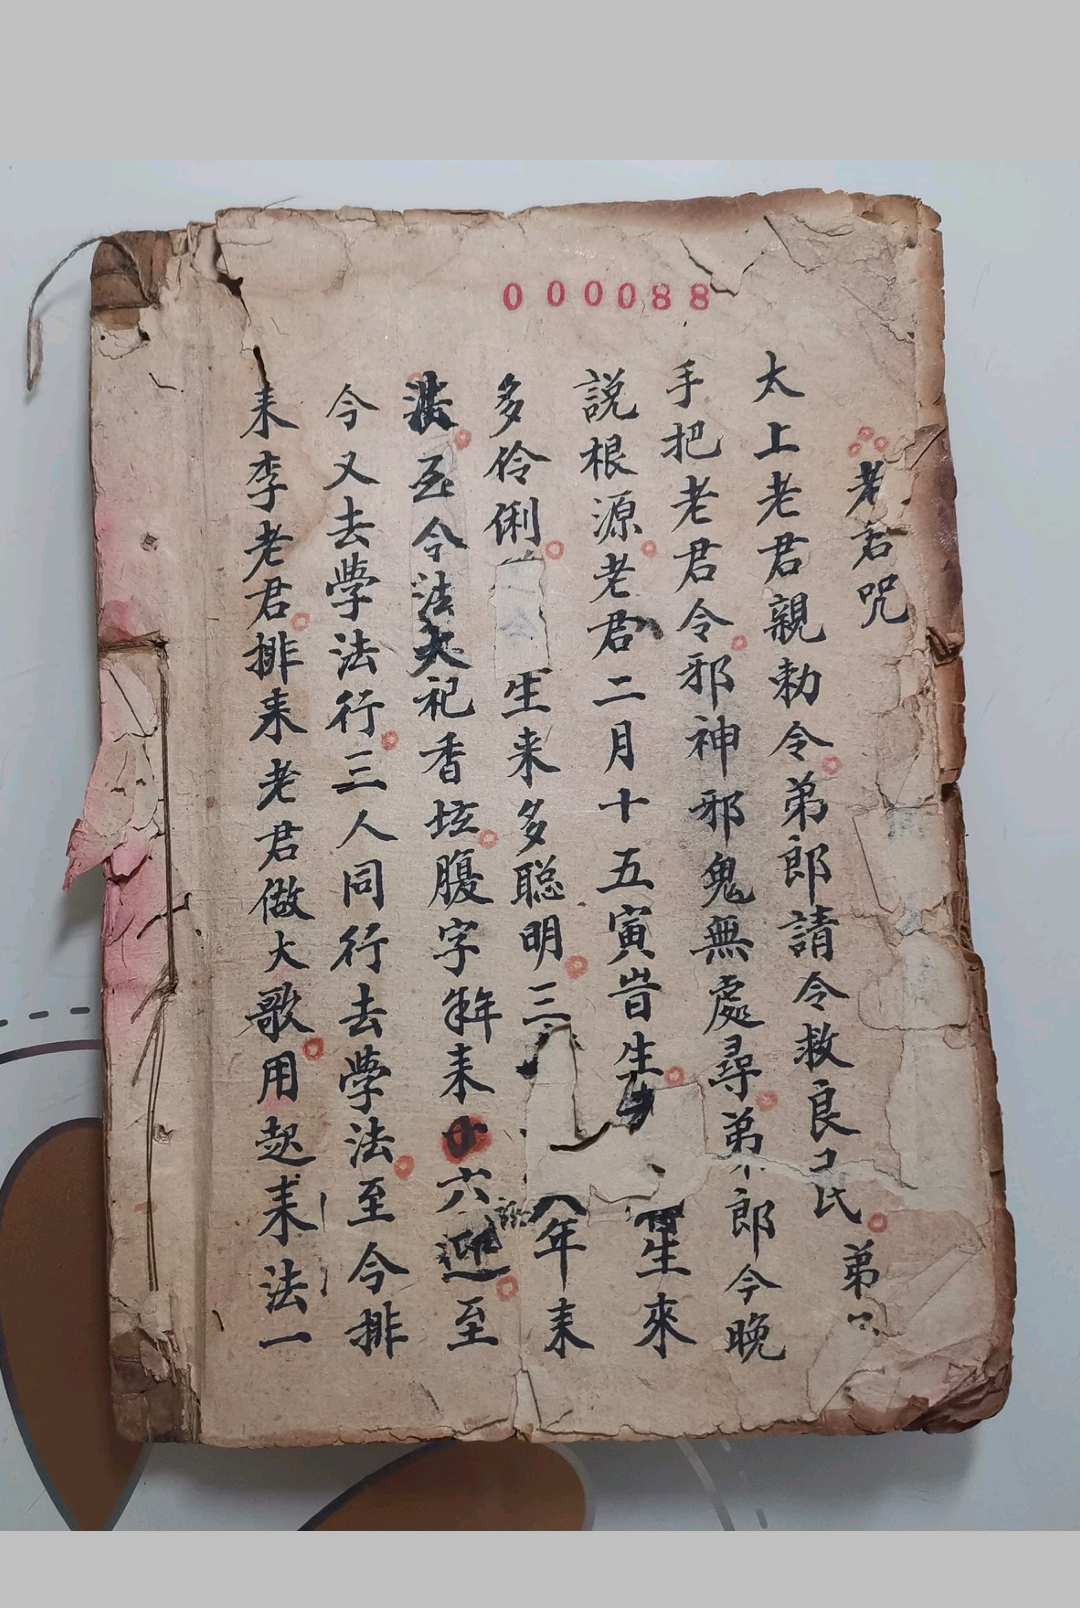 000088
老君咒
太上老君親勅令弟郎請令救良民弟
手把老君令邪神邪鬼無處尋弟郎今晚
説根源老君二月十五寅旹生 生來
多伶俐 生来多聡明三 八年耒
法至今法大祀香坛腹字 耒 六 至
今又去學法行三人同行去學法至今排
耒李老君排耒老君做大歌用起耒法一